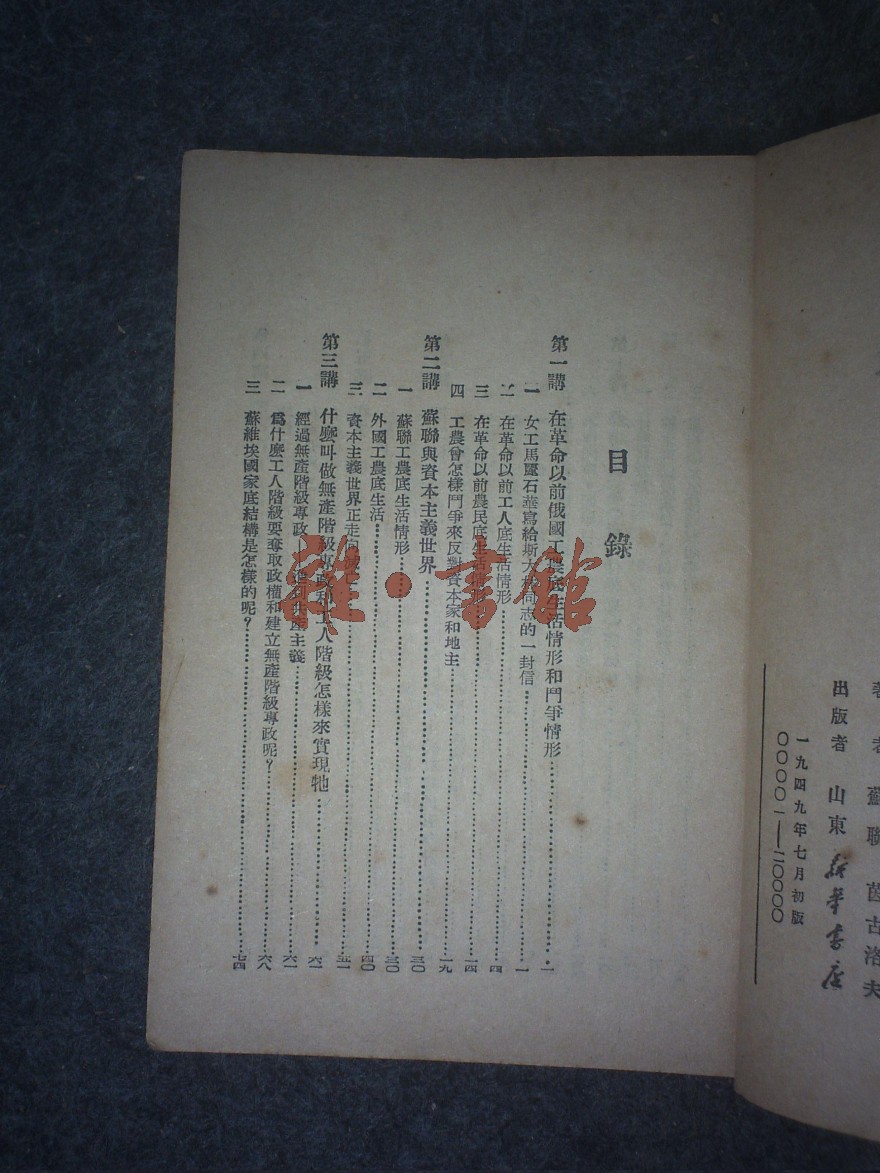 著者 蘇聯 茵古洛夫
出版者 山東新華書店
一九四九年七月初版
〇〇〇〇一——二〇〇〇〇
目錄
第一講 在革命以前俄國工農底生活情形和鬥爭情形……一
一 女工馬露石華寫給斯大林同志的一封信……一
二 在革命以前工人底生活情形……四
三 在革命以前農民底生活情形……一四
四 工農曾怎樣鬥爭來反對資本家和地主……一九
第二講 蘇聯與資本主義世界……三〇
一 蘇聯工農底生活情形……三〇
二 外國工農底生活……四〇
三 資本主義世界正走向滅……五一
第三講 什麼叫做無產階級專政和工人階級怎樣來實現牠……六一
一 經過無產階級專政——達到共產主義……六一
二 爲什麼工人階級要奪取政權和建立無產階級專政呢?……六八
三 蘇維埃國家底結構是怎樣的呢?……七四
雜·書館